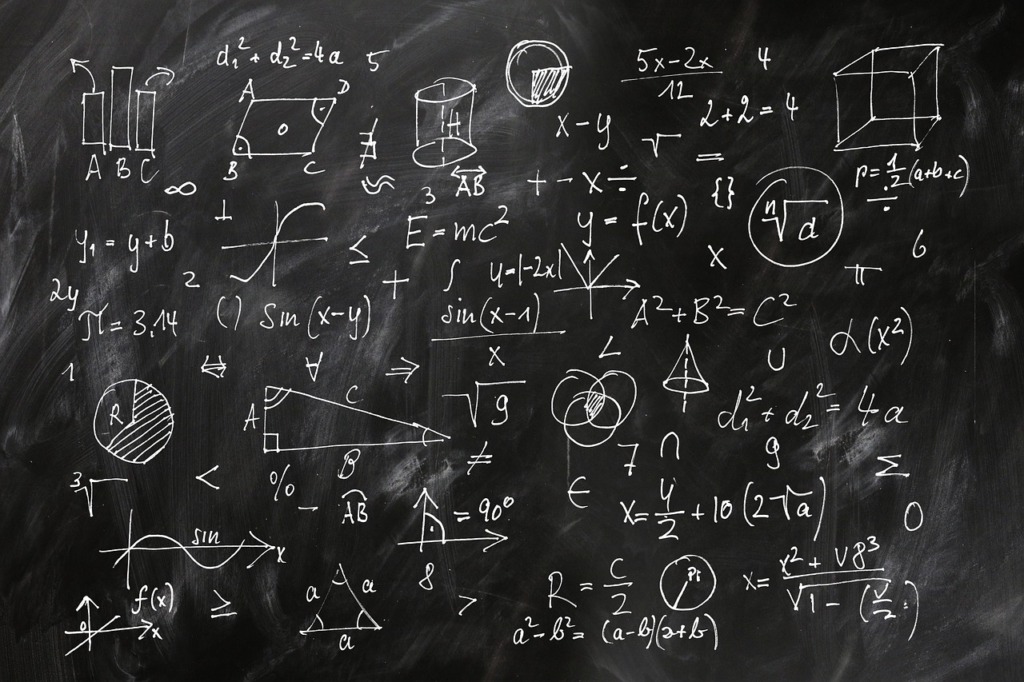 d₁² + d₂² = 4a 5
A B C
A D
O
B C
H
(5x-2x)/12 4
2+2=4
x-y √ =
∞ 3 AB + - x ÷ {}
p = 1/2 (a+b+c)
÷
ⁿ√d
⊥ E = mc² y = f(x)
y₁ = y+b ≤ x π 6
2 + ∫ y=|-2x|
2y
π = 3,14 () sin (x-y) sin(x-1)/x A² + B² = C²
∠ ∪ α(x²)
1 ⇔ ∀ ⇒
R A C √9
B
d₁² + d₂² = 4a
≠ 7 ∩ 9 Σ
³√ < % ∈
- AB = 90°
x = y/2 + 10 (2√a) 0
sin x
8
f(x) ≥ a a >
0 x a
R = c/2 Pi
x = (x² + √8³)/√1 - (√/2)
a² - b² = (a-b)(a+b)